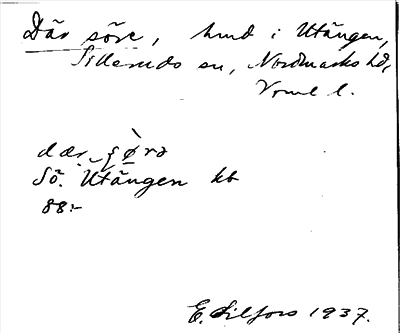 Där söre, hmd i Utängen,
Silleruds sn, Nordmarks hd,
Vrml l.
Sö. Utängen kb
88:-
E. Lilfors 1937.